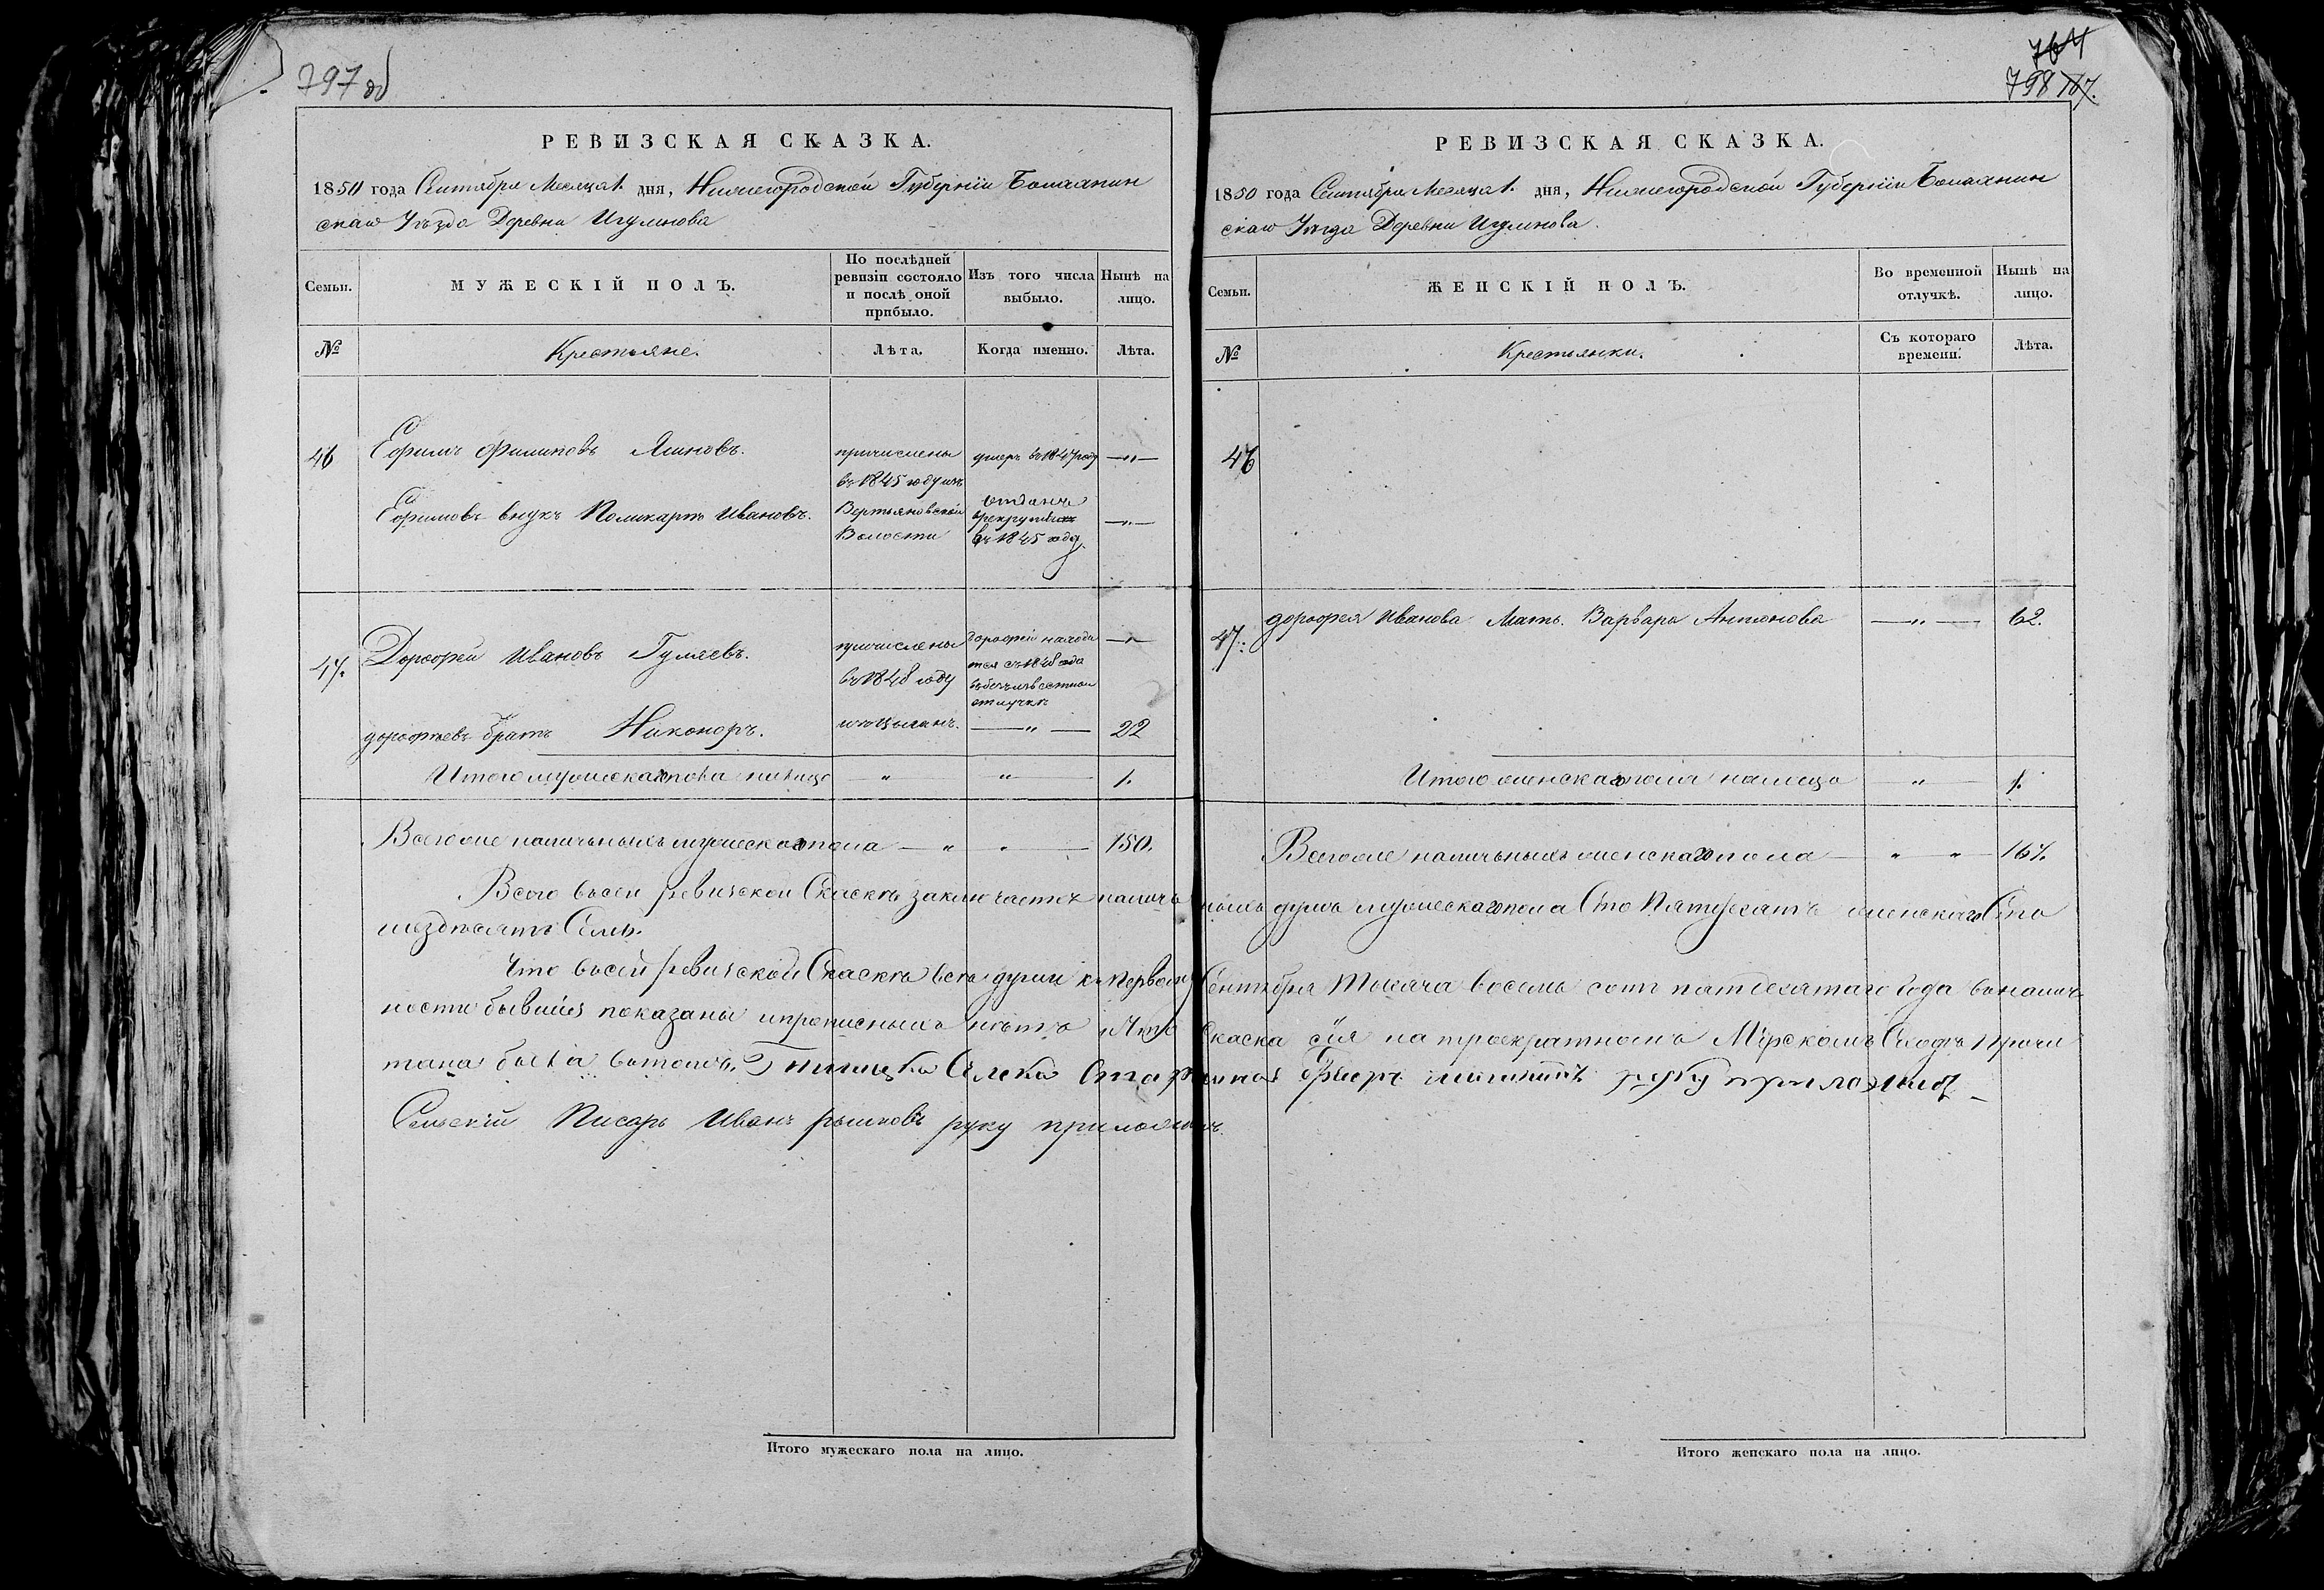 797 об
РЕВИЗСКАЯ СКАЗКА.
1850 года Сентября Месяца 1. дня, Нижегородской Губернiи Балахнин
скаго Уѣзда Деревни Игумнова
Семьи.
МУЖЕСКІЙ ПОЛЪ.
По послѣдней
ревизіи состояло
и послѣ оной
прибыло.
Изъ того числа
выбыло.
Нынѣ на
лицо.
№
Крестьяне.
Лѣта.
Когда именно.
Лѣта.
46
Ефимъ Филиповъ
причислены
умеръ въ 1847 году
въ 1845 году изъ
Ефимовъ внукъ Поликарпъ Ивановъ.
Вертьяновской
Волости
отданъ
въ 1845 году
47.
Дорофей Ивановъ Гуляевъ.
причислены
въ 1848 году
Дорофей находи
тся съ 1848 года
отлучкѣ
дорофѣевъ братъ Никоноръ.
22
Итого мужескаго пола налицо
1.
Всегоже наличныхъ мужескаго пола
150.
764
798
РЕВИЗСКАЯ СКАЗКА.
1850 года Сентября Месяца 1. дня, Нижегородской Губернiи Балахнин
скаго Уѣзда Деревни Игумнова.
Семьи.
ЖЕНСКІЙ ПОЛЪ.
Во временной
отлучкѣ.
Нынѣ на
лицо.
№
Крестьянки.
Съ котораго
времени.
Лѣта.
46
47.
дорофея Иванова Мать Варвара Антонова
62.
Итого женскаго пола налицо
1.
Всегоже наличныхъ женскаго пола
167.
Всего въсей ревизской Скаскѣ заключается наличныхъ душъ мужескаго пола Сто Пятдесятъ женскаго Сто
шездѣсятъ Семь.
Что въсей ревизской Скаскѣ всѣ души к Первому Сентября Тысяча восемь сотъ пятдесятаго Года вналич
ности бывшiя показаны ипрописныхъ нѣтъ и что Скаска сiя на троекратномъ Мiрскомъ Сходѣ прочи
тана была вътомъ руку приложилъ
Сельскiй Писарь Иванъ руку приложилъ.
Итого мужескаго пола на лицо.
Итого женскаго пола на лицо.